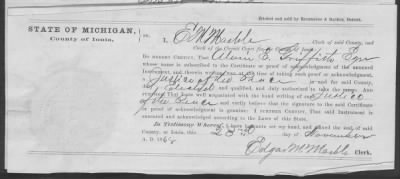 Printed and sold by Richmonds & Backus, Detroit.
STATE OF MICHIGAN,
County of Ionia,
ss. I E M Marble Clerk of said County, and
Clerk of the Circuit Court for
DO HEREBY CERTIFY, That Alvin E. Griffith Esqr
whose name is subscribed to the Certificate or proof of acknowledgment of the annexed
Instrument, and therein written, was at the time of taking such proof or acknowledgment,
a Justice of the Peace in and for said County,
Elected and qualified, and duly authorized to take the same. And
further, That I am well acquainted with the hand writing of such Justice
of the Peace and verily believe that the signature to the said Certificate
or proof of acknowledgment is genuine. I FURTHER CERTIFY, That said Instrument is
executed and acknowledged according to the Laws of this State.
In Testimony Whereof, I have hereunto set my hand, and affixed the seal, of said
County, at Ionia, this 28th day of November
A. D. 186
Edgar M Marble Clerk.